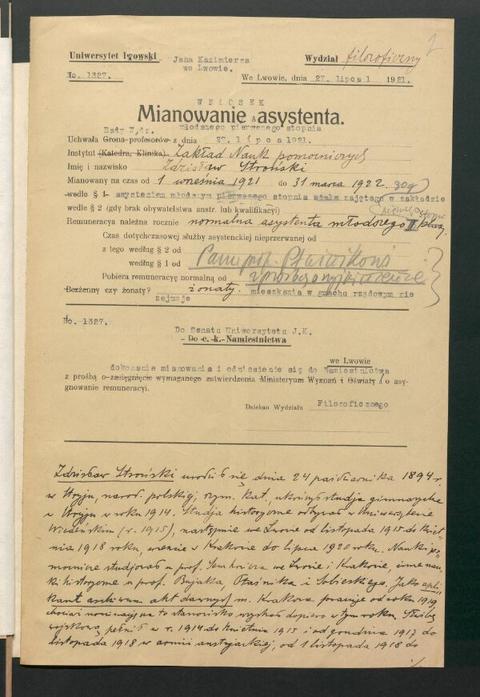 Uniwersytet lwowski Jana Kazimierza we Lwowie. Wydział filozoficzny
No. 1327. We Lwowie, dnia 27. lipca 1 1921.
WNIOSEK
Mianowanie asystenta.
młodszego pierwszego stopnia
Uchwała Grona profesorów z dnia 27. lipca 1921.
Instytut (Katedra, Klinika) Zakład Nauk pomocniczych
Imię i nazwisko Zdzisław Stroński
Mianowany na czas od 1 września 1921 do 31 marca 1922.
wedle § 1 asystentem młodszym pierwszego stopnia zajętego w zakładzie
wedle § 2 (gdy brak obywatelstwa austr. lub kwalifikacyi)
Remuneracja należna rocznie normalna asystenta młodszego II klasy
Czas dotychczasowej służby asystenckiej nieprzerwanej od
z tego według § 2 od
według § 1 od
Pobiera remunerację normalną od
Bezżenny czy żonaty? żonaty. mieszkania w gmachu rządowym nie
zajmuje
No. 1327.
Do Senatu Uniwersytetu J.K.
Do c. k. Namiestnictwa
we Lwowie
dokonanie mianowania i odniesienie się do Namiestnictwa
z prośbą o zasiągnięcie wymaganego zatwierdzenia Ministeryum Wyznań i Oświaty i o asy-
gnowanie remuneracyi.
Dziekan Wydziału Filozoficznego
Zdzisław Stroński urodził się dnia 24 października 1894 r.
w Stryju, narod. polskiej, rzym. kat., ukończył studja gimnazyalne
w Stryju w roku 1914. Studja historyczne odbywał w Uniwersytecie
Wiedeńskim (r. 1915), następnie we Lwowie od listopada 1915 do kwiet-
nia 1918 roku, wreszcie w Krakowie do lipca 1920 roku. Nauki po-
mocnicze studjował u prof. Semkowicza we Lwowie i Krakowie, inne nau-
ki historyczne u prof. Bujaka, Ptaśnika i Sobieskiego. Jako apli-
kant archiwum akt dawnych m. Krakowa pracuje od roku 1919
chociaż nominację na to stanowisko wysłano dopiero w tym roku. Służbę
wojskową pełnił w r. 1914 do kwietnia 1915 i od grudnia 1917 do
listopada 1918 w armii austryackiej, od 1 listopada 1918 do